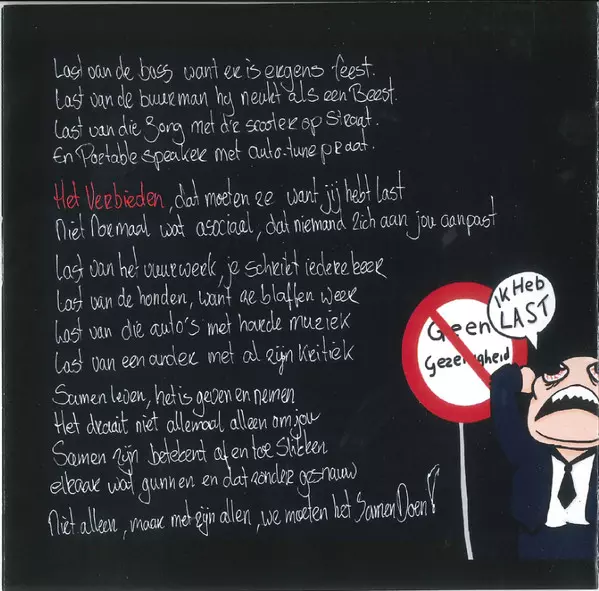 Last van de bass want er is ergens feest.
Last van de buurman hij neukt als een Beest.
Last van die Jong met d'r scooter op straat.
En Portable speaker met auto-tune praat.
Het Verbieden, dat moeten ze want jij hebt last
Niet Normaal wat asociaal, dat niemand zich aan jou aanpast
Last van het vuurwerk, je schrikt iedere keer
Last van de honden, want ze blaffen weer
Last van die auto's met harde muziek
Last van een ander met al zijn kritiek
Samen leven, het is geven en nemen
Het draait niet allemaal alleen om jou
Samen zijn betekent af en toe slikken
elkaar wat gunnen en dat zonder gesnauw
Niet alleen, maar met zijn allen, we moeten het Samen Doen!
Ik Heb
LAST
Geen
Gezelligheid